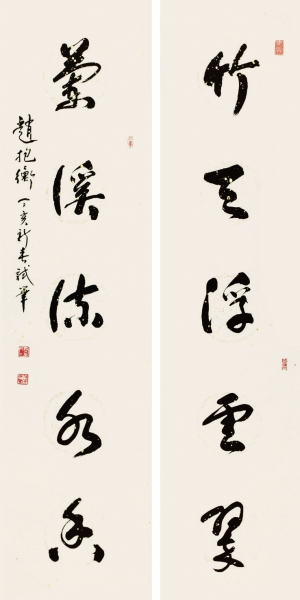 竹天浮雲翠
蘭溪流水香
趙抱衡丁亥新春試筆